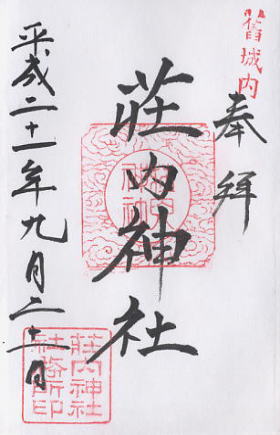 舊城内
奉拜
莊内神社
平成二十一年九月二十日
莊内神社
社務所印